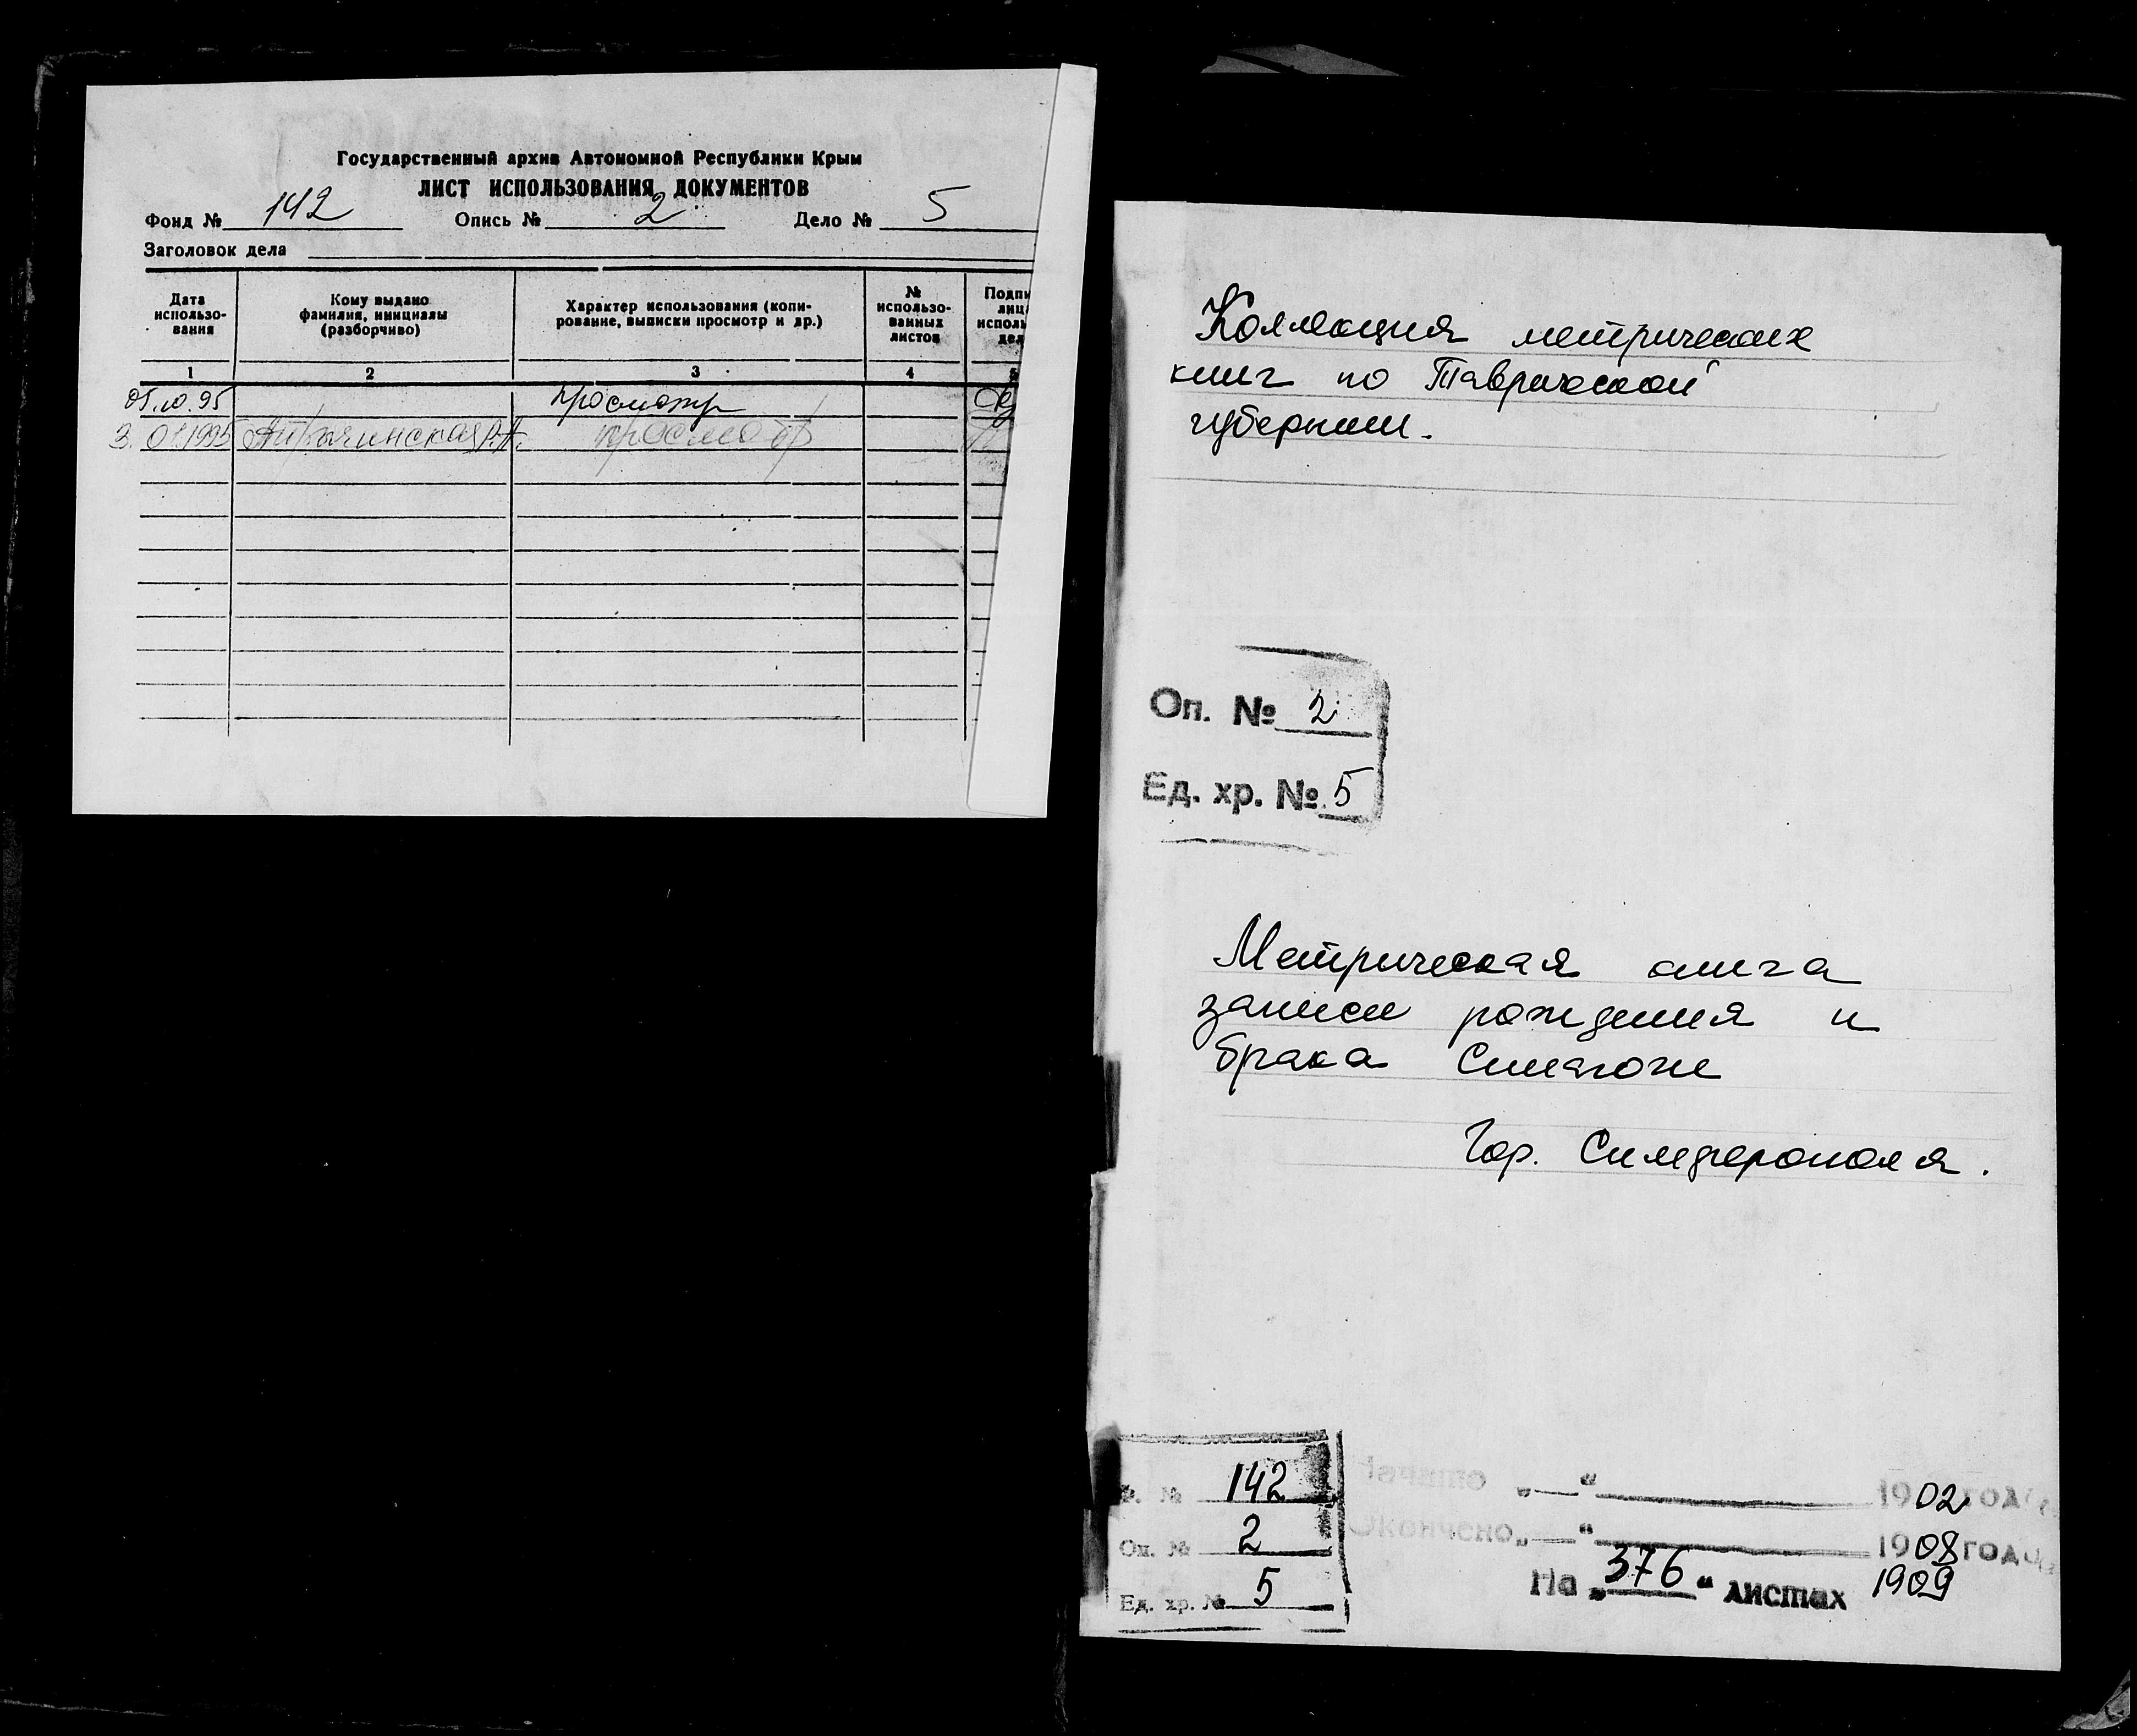 Государственный архив Автономной Республики Крым
ЛИСТ ИСПОЛЬЗОВАНИЯ ДОКУМЕНТОВ
Фонд № 142 Опись № 2 Дело № 5
Заголовок дела
Дата использо-вания
Кому выдано фамилия, инициалы (разборчиво)
Характер использования (копи-рование, выписки просмотр и др.)
№ использо-ванных листов
1 2 3 4 5
05.10.95 просмотр
просмотр
Коллекция метрических
книг по Таврической
губернии.
Оп. № 2
Ед. хр. № 5
Метрическая книга
записи рождения и
брака Синагоги
Гор. Симферополя.
Ф. № 142
Оп. № 2
Ед. хр. № 5
Начато „—“ 1902 года
Окончено „—“ 1908 года
На „376“ листах 1909